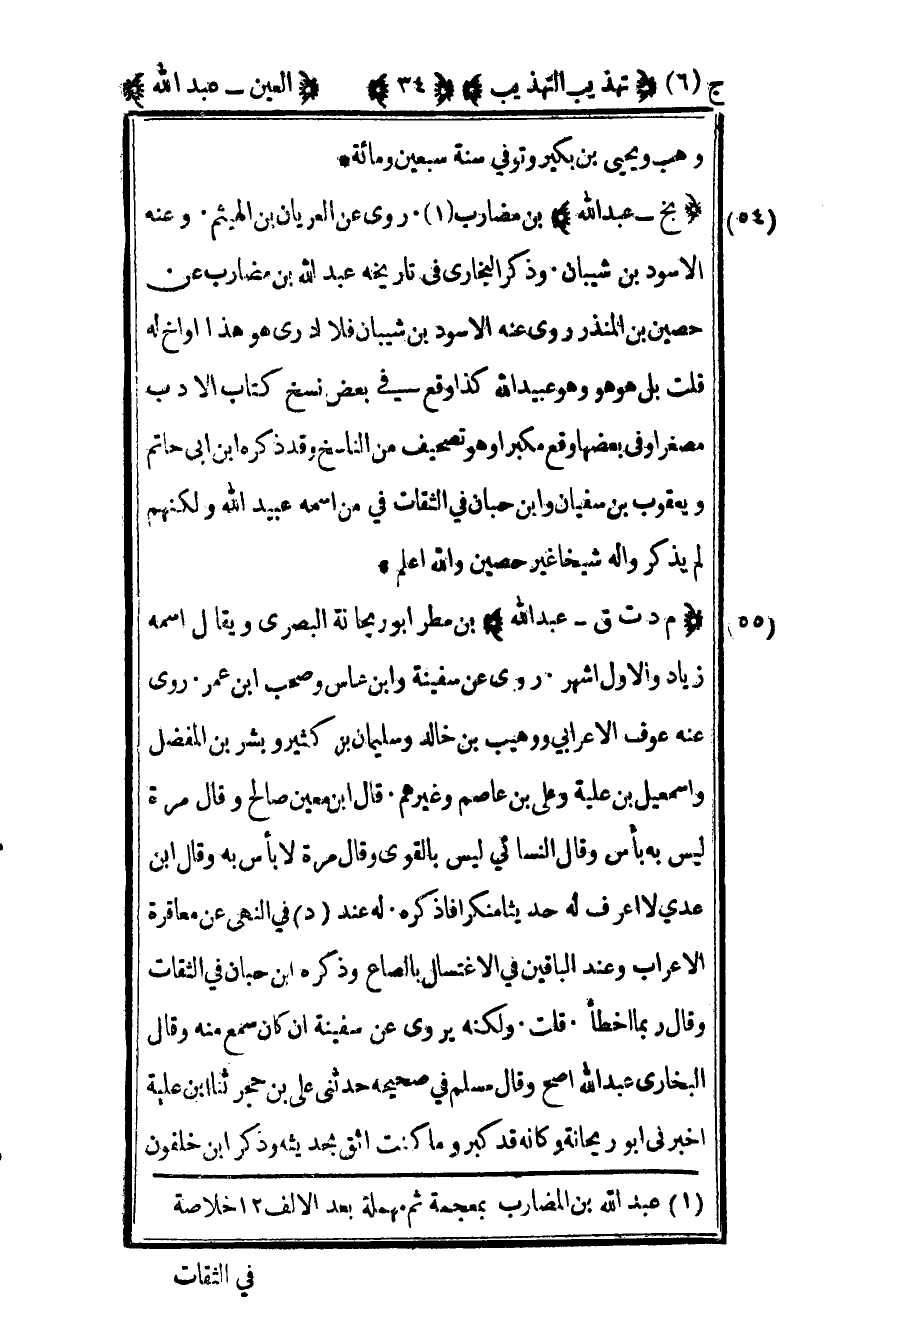 ج (٦) ﴿ تهذيب التهذيب ﴾ ﴿ ٣٤ ﴾ ﴿ العين ــ عبد الله ﴾
وهب ويحيى بن بكير وتوفي سنة سبعين ومائة *
(٥٤) ﴿ بخ ــ عبدالله ﴾ بن مضارب (١) · روى عن العريان بن الهيثم · وعنه
الاسود بن شيبان · وذكر البخارى فى تاريخه عبد الله بن مضارب عن
حصين بن المنذر روى عنه الاسود بن شيبان فلا ادرى هو هذا او اخ له
قلت بل هو هو وهو عبيدالله كذا وقع سيفي بعض نسخ كتاب الادب
مصغرا وفى بعضها وقع مكبرا وهو تصحيف من الناسخ وقد ذكره ابن ابى حاتم
ويعقوب بن سفيان وابن حبان في الثقات في من اسمه عبيد الله ولكنهم
لم يذكروا له شيخا غير حصين والله اعلم *
(٥٥) ﴿ م د ت ق ــ عبدالله ﴾ بن مطر ابو ريحانة البصرى ويقال اسمه
زياد والاول اشهر · روى عن سفينة وابن عباس وصحب ابن عمر · روى
عنه عوف الاعرابي ووهيب بن خالد وسليمان بن كثير وبشر بن المفضل
واسمعيل بن علية وعلى بن عاصم وغيرهم · قال ابن معين صالح وقال مرة
ليس به بأس وقال النسائي ليس بالقوى وقال مرة لا بأس به وقال ابن
عدي لا اعرف له حديثا منكرا فاذكره · له عند (د) في النهى عن معاقرة
الاعراب وعند الباقين في الاغتسال بالصاع وذكره ابن حبان في الثقات
وقال ربما اخطأ · قلت · ولكنه يروى عن سفينة ان كان سمع منه وقال
البخارى عبدالله اصح وقال مسلم في صحيحه حدثنى على بن حجر ثنا ابن علية
اخبرنى ابو ريحانة وكانه قد كبر وما كنت اثق بحديثه وذكر ابن خلفون
(١) عبد الله بن المضارب بمعجمة ثم مهملة بعد الالف ١٢ خلاصة
في الثقات